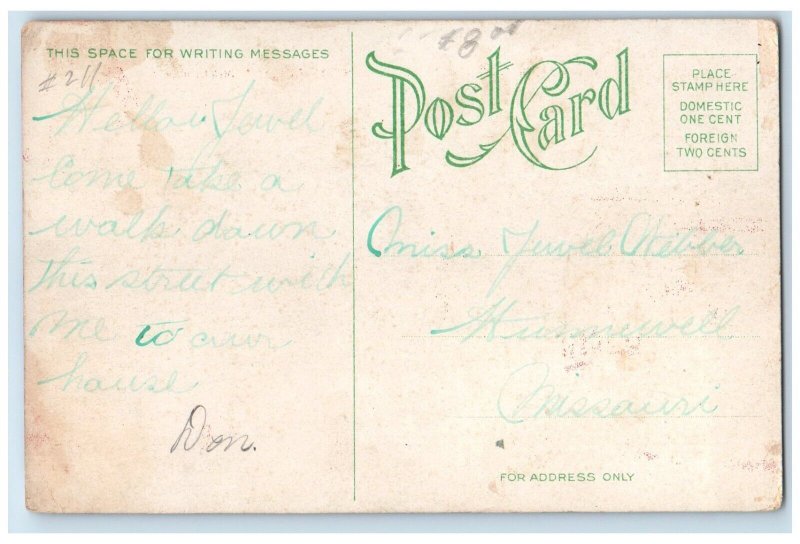 THIS SPACE FOR WRITING MESSAGES
#211
Hellow Jewel
Come take a
walk down
this street with
me to our
house
Don.
#8 00
Post Card
PLACE
STAMP HERE
DOMESTIC
ONE CENT
FOREIGN
TWO CENTS
Miss Jewel Webber
Hunnewell
Missouri
FOR ADDRESS ONLY